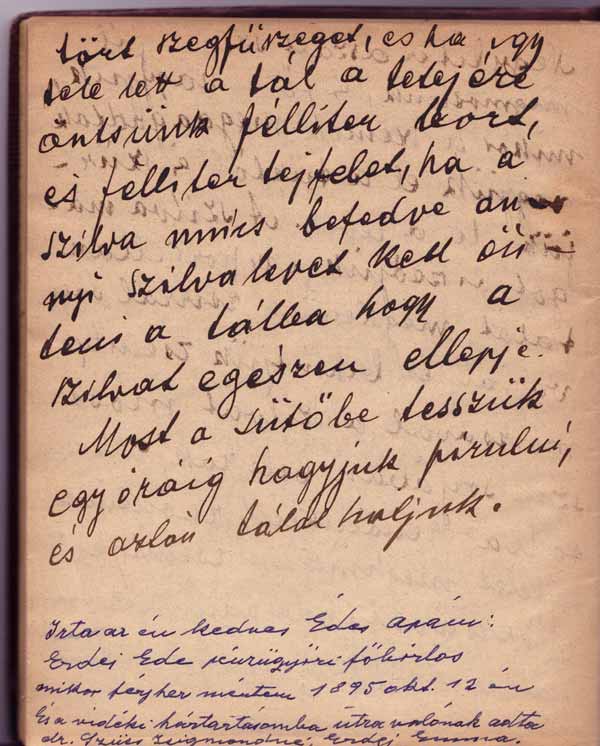 tört szegfüszeget, es ha igy
tele lett a tál a tetejére
öntsünk félliter bort,
és felliter tejfelet, ha a
szilva nincs befedve an-
nyi szilvalevet kell ön-
teni a tálba hogy a
szilvat egészen ellepje.
Most a sütőbe tesszük
egy óráig hagyjuk pirulni,
és aztán tálalhatjuk.
Irta az én kedves Édes apám:
Erdei Ede pénzügyőri főbiztos
mikor férjhez mentem 1895 okt. 12 én
És a vidéki háztartásomba útravalónak adta
dr. Szücs Zsigmondné, Erdej Emma.